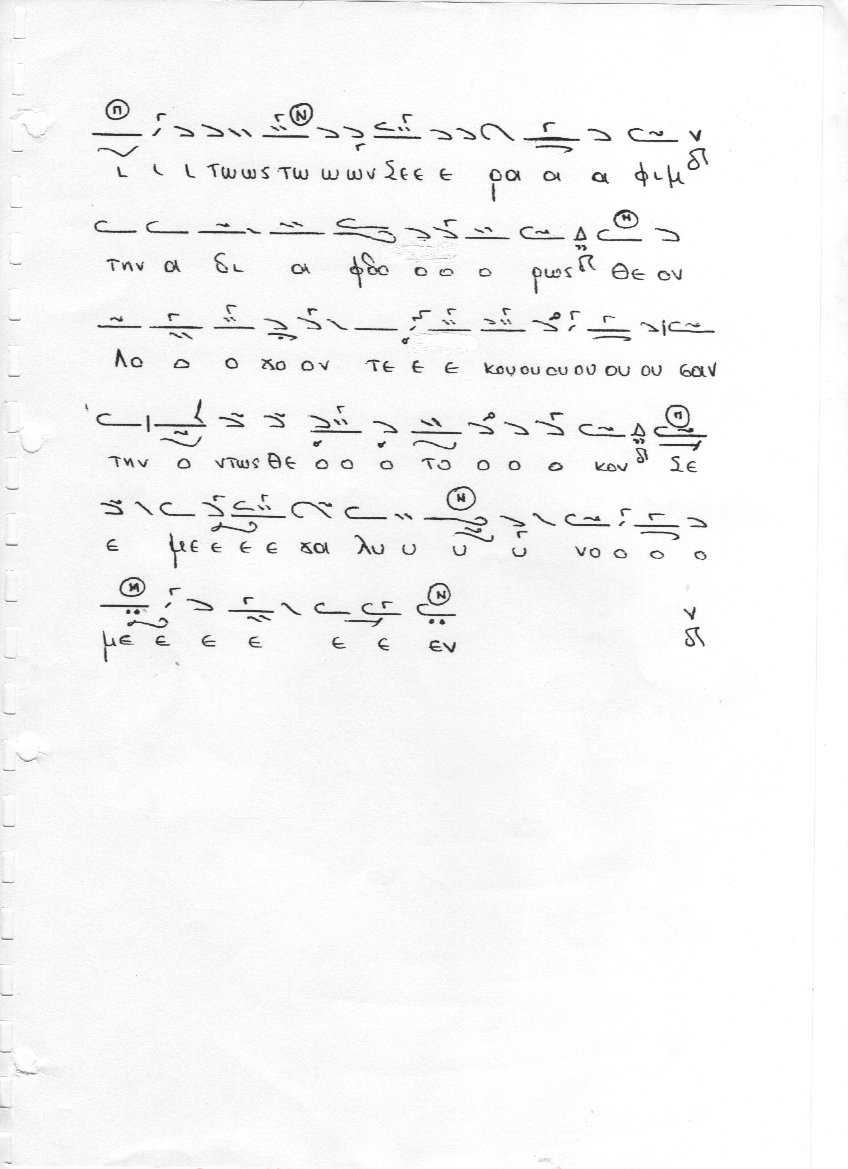 ι ι ι τωως τω ω ων Σεε ε ρα α α φιμ
την α δι α φθο ο ο ο ρως Θε ον
Λο ο ο γο ον τε ε ε κου ου ου ου ου ου σαν
την ο ντως Θε ο ο ο το ο ο ο κον Σε
ε με ε ε ε γα λυ υ υ υ νο ο ο ο
με ε ε ε ε ε εν